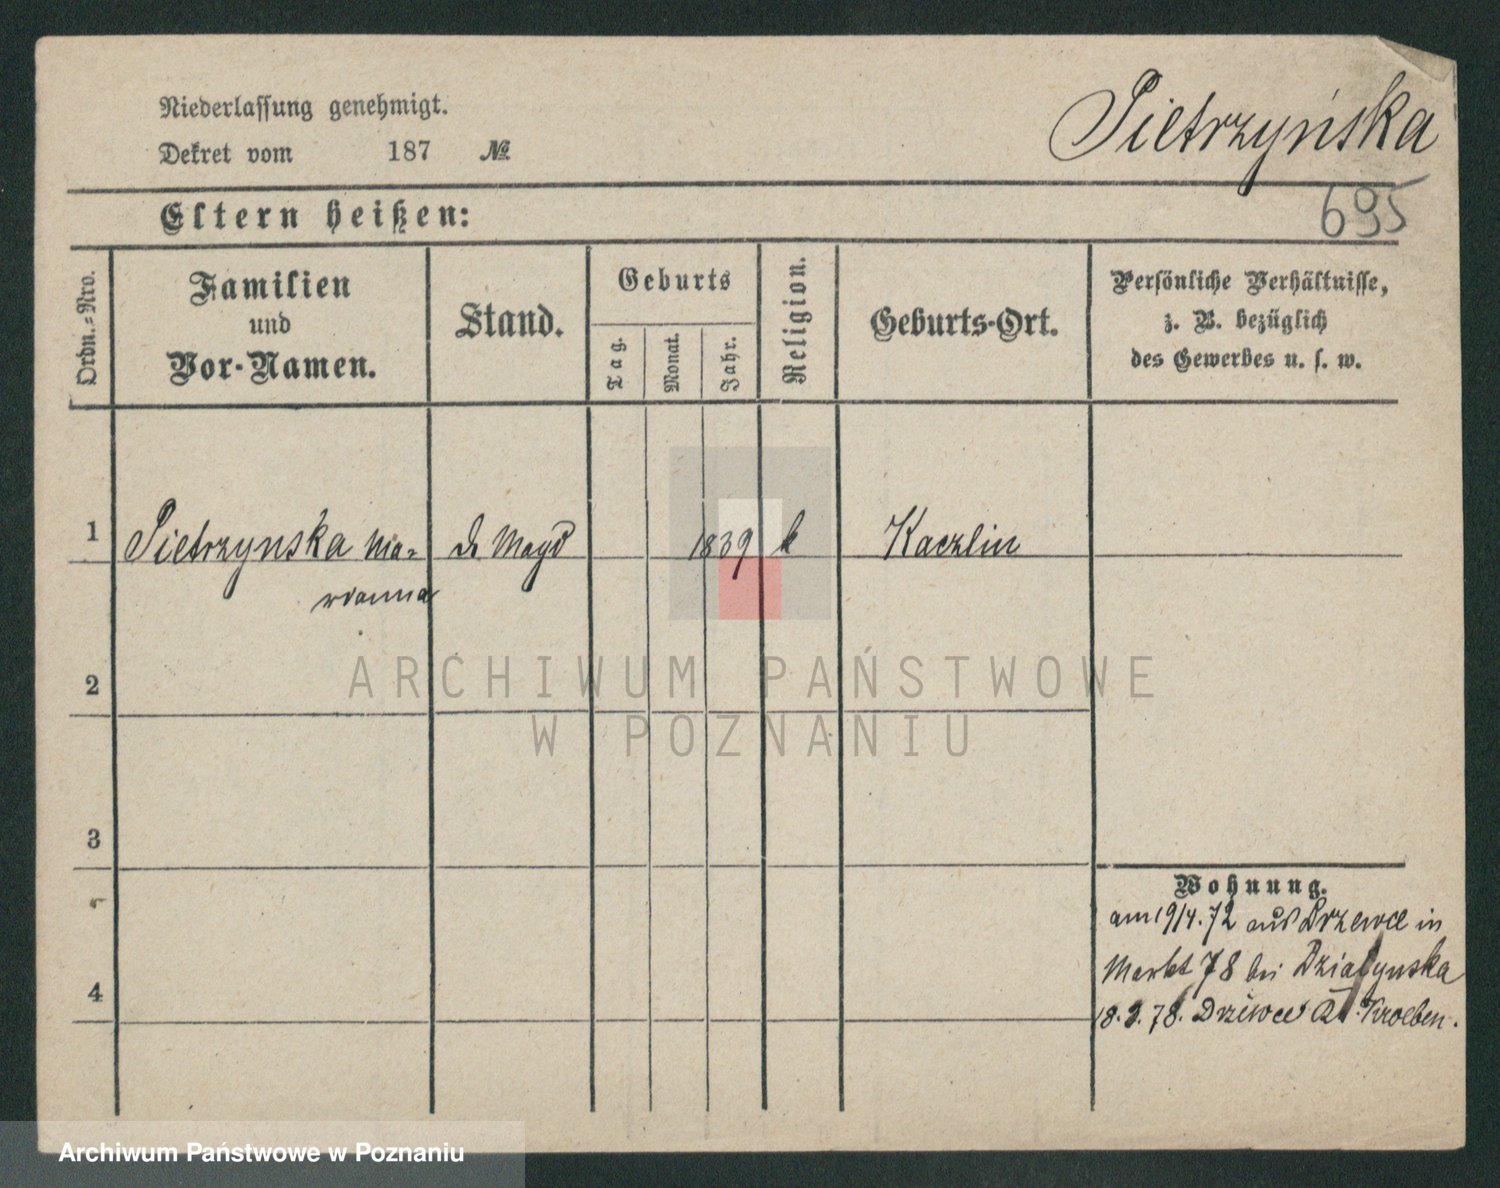 Niederlassung genehmigt.
Pietrzyńska
Dekret vom 187 №
695
Eltern heißen:
Ordn.-Nro.
Familien
und
Vor-Namen.
Stand.
Geburts
Tag.
Monat.
Jahr.
Religion.
Geburts-Ort.
Persönliche Verhältnisse,
z. B. bezüglich
des Gewerbes u. s. w.
1 Pietrzynska Ma- Magd 1839 k Kaczlin
rianna
2
ARCHIWUM PAŃSTWOWE
W POZNANIU
3
Wohnung.
am 19/4.72 aus Drzewce in
Markt 78 bei Dzialynska
4
18.3.78. Drzewce Kroeben.
Archiwum Państwowe w Poznaniu